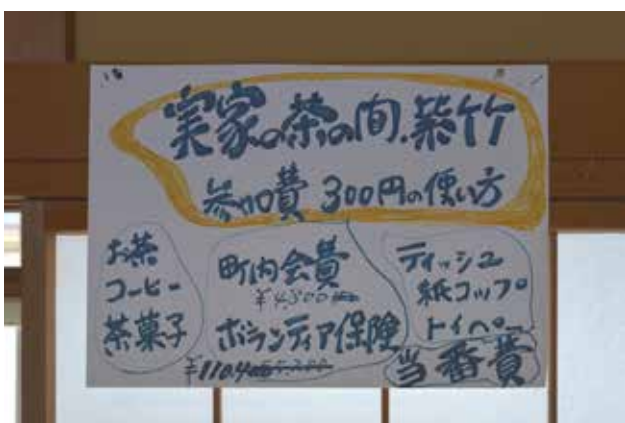 実家の茶の間・紫竹
参加費300円の使い方
お茶
コーヒー
茶菓子
町内会費
¥4,800
ボランティア保険
ティッシュ
紙コップ
トイペー
当番費